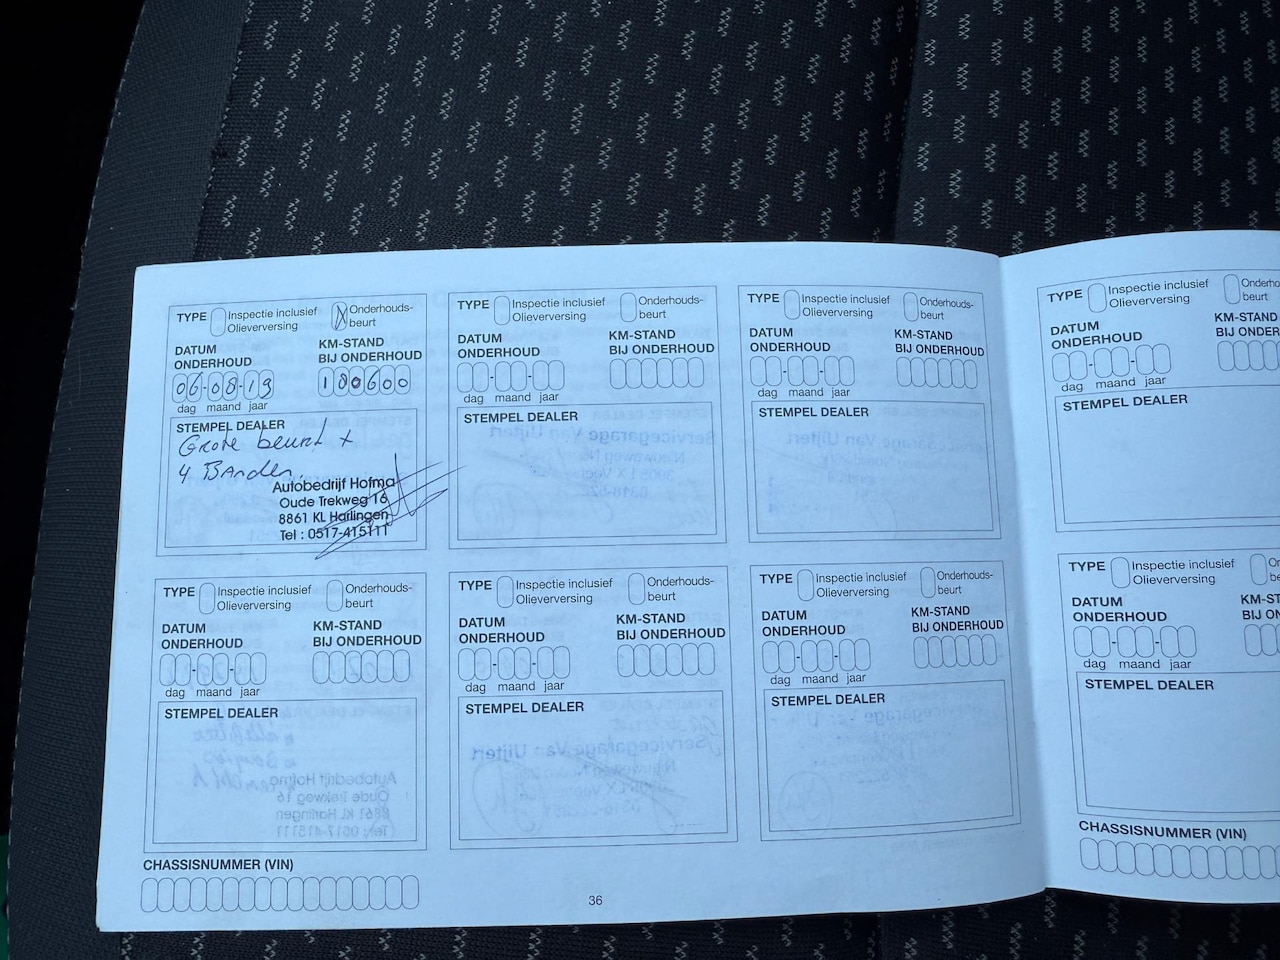 TYPE Inspectie inclusief Olieverversing X Onderhouds-beurt
DATUM ONDERHOUD KM-STAND BIJ ONDERHOUD
06-08-19 180600
dag maand jaar
STEMPEL DEALER
Grote beurt +
4 Banden
Autobedrijf Hofma
Oude Trekweg 16
8861 KL Harlingen
Tel : 0517-415111
TYPE Inspectie inclusief Olieverversing Onderhouds-beurt
DATUM ONDERHOUD KM-STAND BIJ ONDERHOUD
dag maand jaar
STEMPEL DEALER
Servicegarage Van Uijtert
TYPE Inspectie inclusief Olieverversing Onderhouds-beurt
DATUM ONDERHOUD KM-STAND BIJ ONDERHOUD
dag maand jaar
STEMPEL DEALER
TYPE Inspectie inclusief Olieverversing
DATUM ONDERHOUD KM-STAND
dag maand jaar
STEMPEL DEALER
TYPE Inspectie inclusief Olieverversing Onderhouds-beurt
DATUM ONDERHOUD KM-STAND BIJ ONDERHOUD
dag maand jaar
STEMPEL DEALER
Autobedrijf Hofma
Oude Trekweg 16
8861 KL Harlingen
Tel : 0517-415111
TYPE Inspectie inclusief Olieverversing Onderhouds-beurt
DATUM ONDERHOUD KM-STAND BIJ ONDERHOUD
dag maand jaar
STEMPEL DEALER
Servicegarage Van Uijtert
TYPE Inspectie inclusief Olieverversing Onderhouds-beurt
DATUM ONDERHOUD KM-STAND BIJ ONDERHOUD
dag maand jaar
STEMPEL DEALER
TYPE Inspectie inclusief Olieverversing
DATUM ONDERHOUD
dag maand jaar
STEMPEL DEALER
CHASSISNUMMER (VIN)
36
CHASSISNUMMER (VIN)